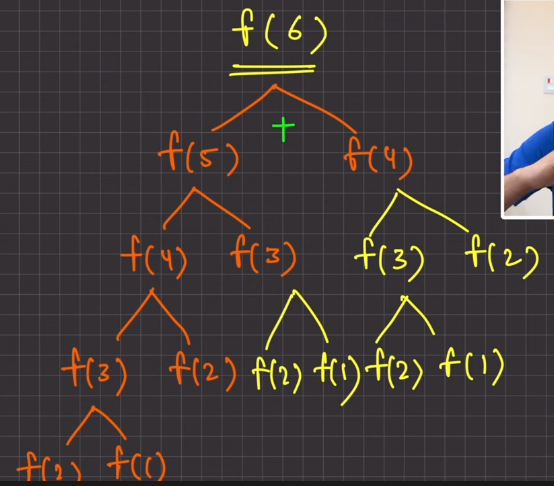 f(6)
+
f(5) f(4)
f(4) f(3) f(3) f(2)
f(3) f(2) f(2) f(1) f(2) f(1)
f(2) f(1)